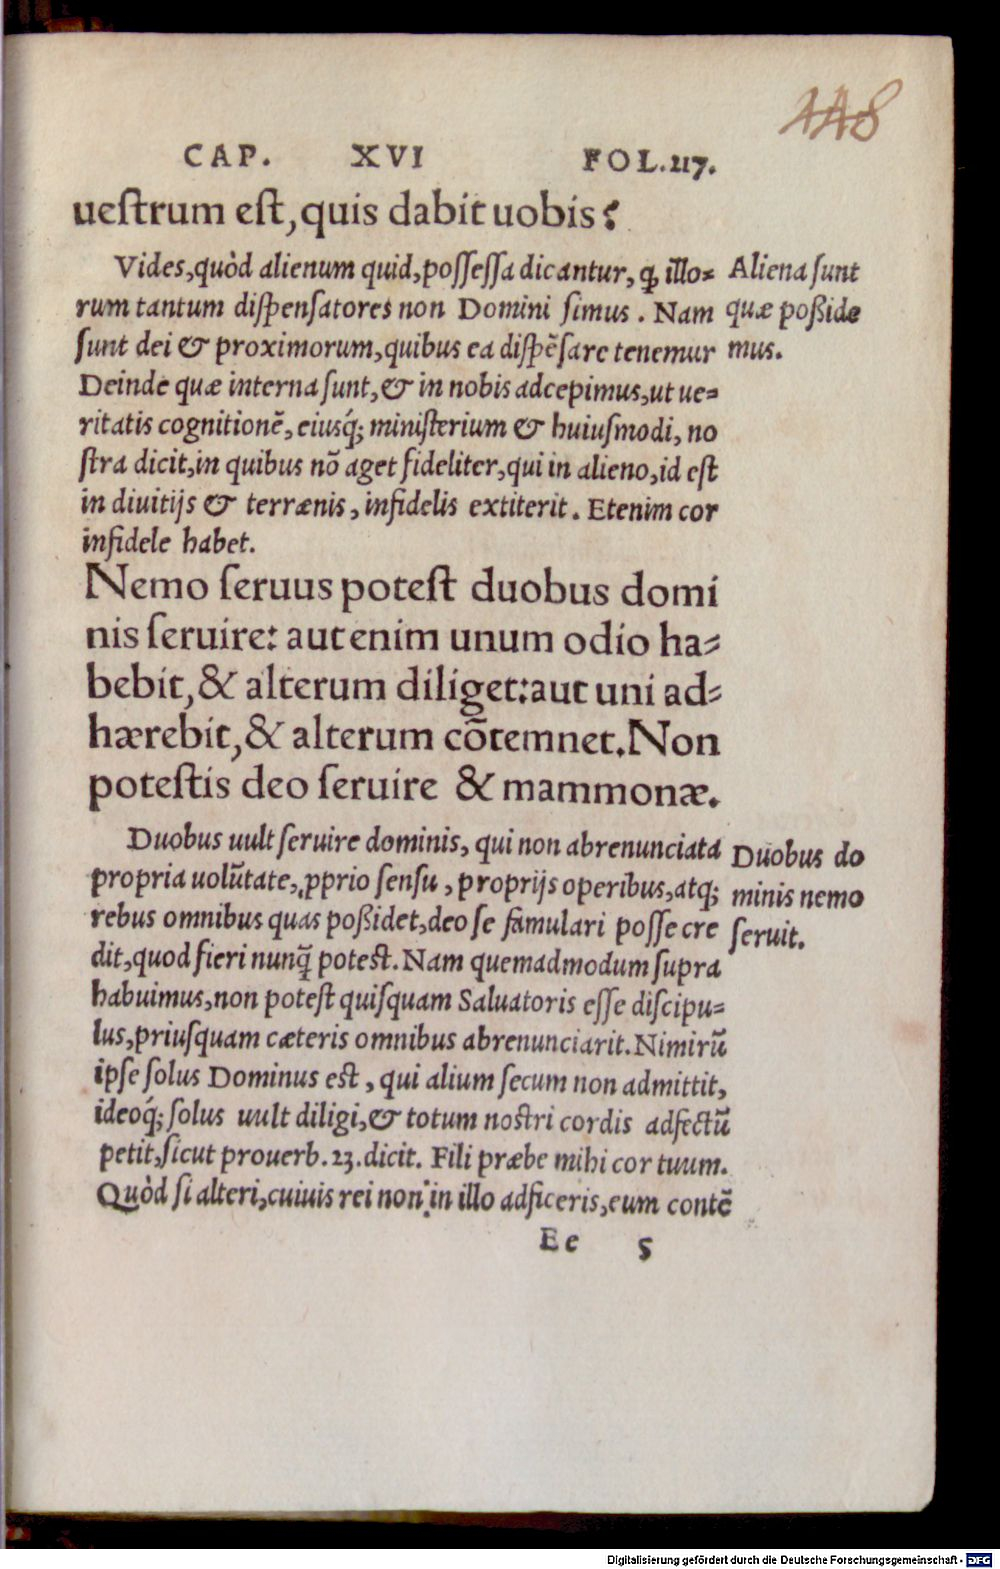 448
CAP. XVI FOL.117.
ueſtrum eſt, quis dabit uobis?
Vides, quòd alienum quid, poſſeſſa dicantur, ꝙ illo-
rum tantum diſpenſatores non Domini ſimus. Nam
ſunt dei & proximorum, quibus ea diſpēſare tenemur
Aliena ſunt
quæ poßide
mus.
Deinde quæ interna ſunt, & in nobis adcepimus, ut ue-
ritatis cognitionē, eiusq́; miniſterium & huiuſmodi, no
ſtra dicit, in quibus nō aget fideliter, qui in alieno, id eſt
in diuitijs & terrænis, infidelis extiterit. Etenim cor
infidele habet.
Nemo ſeruus poteſt duobus domi
nis ſeruire: aut enim unum odio ha-
bebit, & alterum diliget: aut uni ad-
hærebit, & alterum cōtemnet. Non
poteſtis deo ſeruire & mammonæ.
Duobus uult ſeruire dominis, qui non abrenunciata
propria uolūtate, ꝓprio ſenſu, proprijs operibus, atq;
rebus omnibus quas poßidet, deo ſe famulari poſſe cre
dit, quod fieri nunq̄ poteſt. Nam quemadmodum ſupra
Duobus do
minis nemo
ſeruit.
habuimus, non poteſt quiſquam Saluatoris eſſe diſcipu-
lus, priuſquam cæteris omnibus abrenunciarit. Nimirū
ipſe ſolus Dominus eſt, qui alium ſecum non admittit,
ideoq́; ſolus uult diligi, & totum noſtri cordis adfectū
petit, ſicut prouerb. 23. dicit. Fili præbe mihi cor tuum.
Quòd ſi alteri, cuiuis rei non in illo adficeris, eum contē
Ee 5
Digitalisierung gefördert durch die Deutsche Forschungsgemeinschaft - DFG